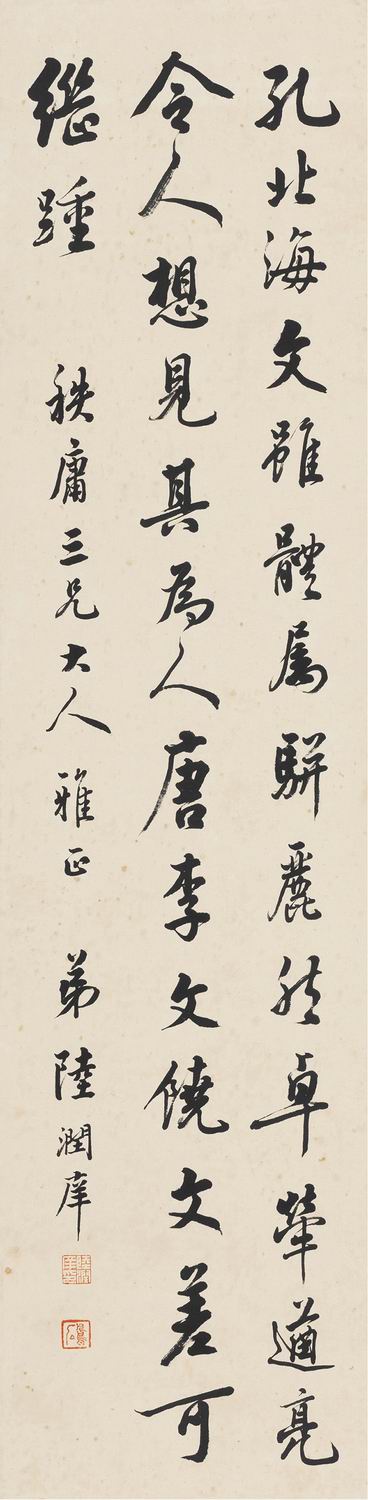 孔北海文雖體屬駢麗然卓犖遒亮
令人想見其為人唐李文饒文差可
繼踵
秩庸三兄大人雅正
弟陸潤庠